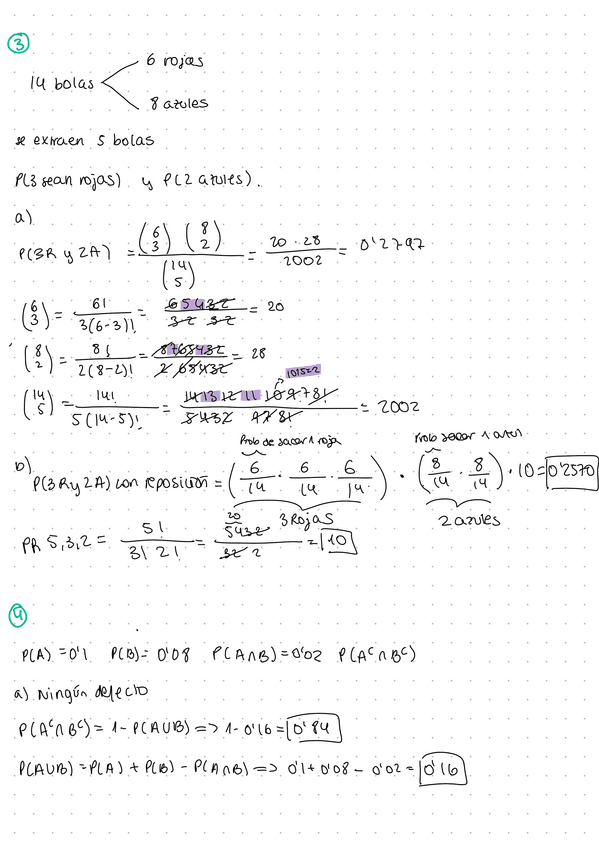 ③
14 bolas
6 rojas
8 azules
se extraen 5 bolas
P(3 sean rojas) y P(2 azules).
a)
P(3R y 2A) = (6 3) (8 2) / (14 5) = 20 · 28 / 2002 = 0'2797
(6 3) = 6! / 3(6-3)! = 65432 / 32 32 = 20
(8 2) = 8! / 2(8-2)! = 8765432 / 2 65432 = 28
101522
(14 5) = 14! / 5(14-5)! = 14 13 12 11 10 9 7 8! / 5432 9 7 8! = 2002
Prob de sacar 1 roja
Prob sacar 1 azul
b) P(3R y 2A) con reposición = (6/14 · 6/14 · 6/14) · (8/14 · 8/14) · 10 = 0'2570
3 Rojas
2 azules
20
PR 5,3,2 = 5! / 3! 2! = 5432 / 32 2 = 10
④
P(A) = 0'1 P(B) = 0'08 P(A∩B) = 0'02 P(Aᶜ∩Bᶜ)
a) Ningún defecto
P(Aᶜ∩Bᶜ) = 1 - P(A∪B) => 1 - 0'16 = 0'84
P(A∪B) = P(A) + P(B) - P(A∩B) => 0'1 + 0'08 - 0'02 = 0'16